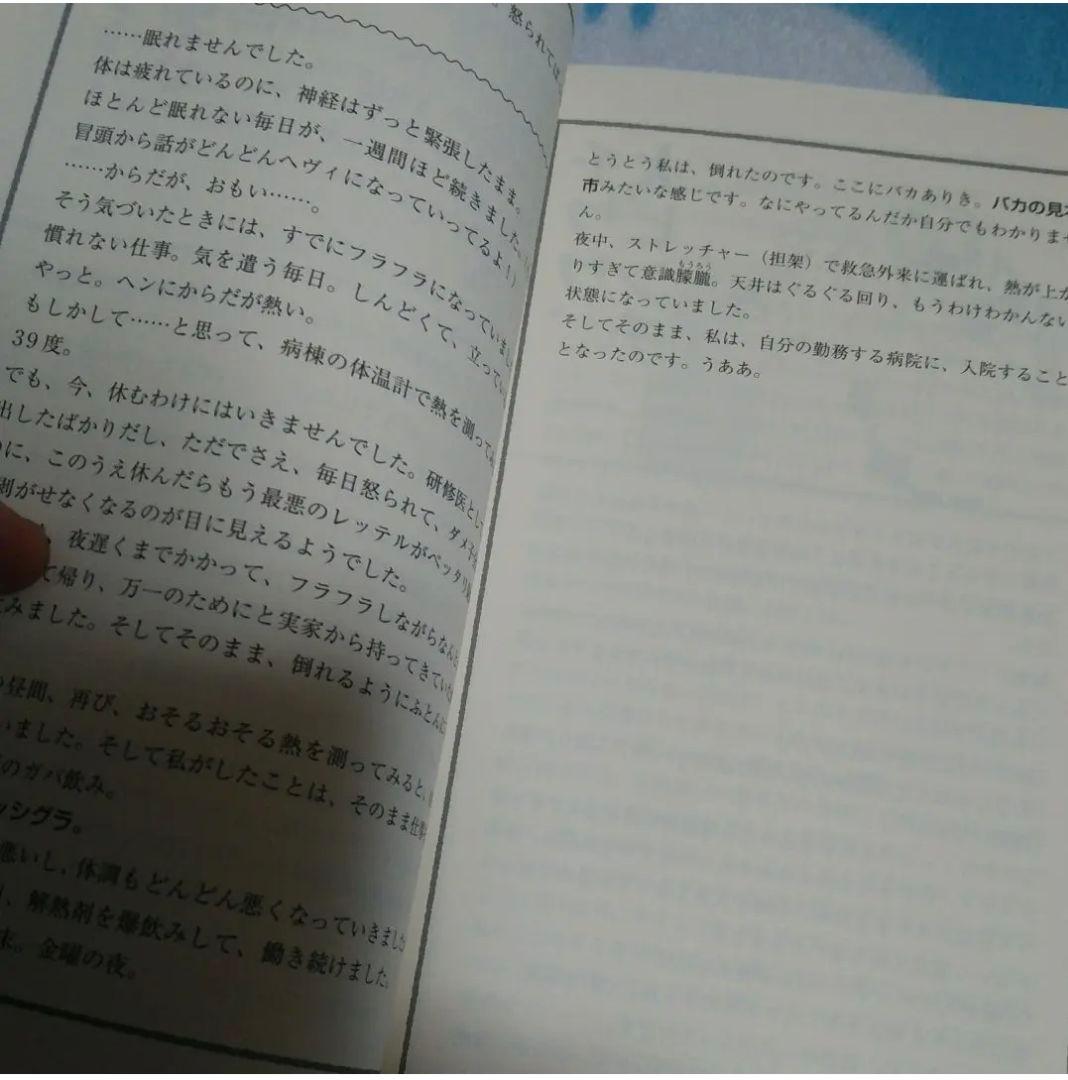 怒られては
……眠れませんでした。
体は疲れているのに、神経はずっと緊張したまま。
ほとんど眠れない毎日が、一週間ほど続きました。
冒頭から話がどんどんヘヴィになっていってるよ!)
……からだが、おもい……。
そう気づいたときには、すでにフラフラになっていまし
慣れない仕事。気を遣う毎日。しんどくて、立ってい
やっと。ヘンにからだが熱い。
もしかして……と思って、病棟の体温計で熱を測って
39度。
でも、今、休むわけにはいきませんでした。研修医とし
出したばかりだし、ただでさえ、毎日怒られて、ダメ
に、このうえ休んだらもう最悪のレッテルがベッタリ
剥がせなくなるのが目に見えるようでした。
、夜遅くまでかかって、フラフラしながらなんと
て帰り、万一のためにと実家から持ってきていた
みました。そしてそのまま、倒れるようにふとんに
昼間、再び、おそるおそる熱を測ってみると、
いました。そして私がしたことは、そのまま仕事
のガバ飲み。
ッシグラ。
悪いし、体調もどんどん悪くなっていきました
、解熱剤を爆飲みして、働き続けました。
末。金曜の夜。
とうとう私は、倒れたのです。ここにバカありき。バカの見本
市みたいな感じです。なにやってるんだか自分でもわかりませ
ん。
夜中、ストレッチャー(担架)で救急外来に運ばれ、熱が上が
りすぎて意識朦朧。天井はぐるぐる回り、もうわけわかんない
状態になっていました。
そしてそのまま、私は、自分の勤務する病院に、入院すること
となったのです。うああ。